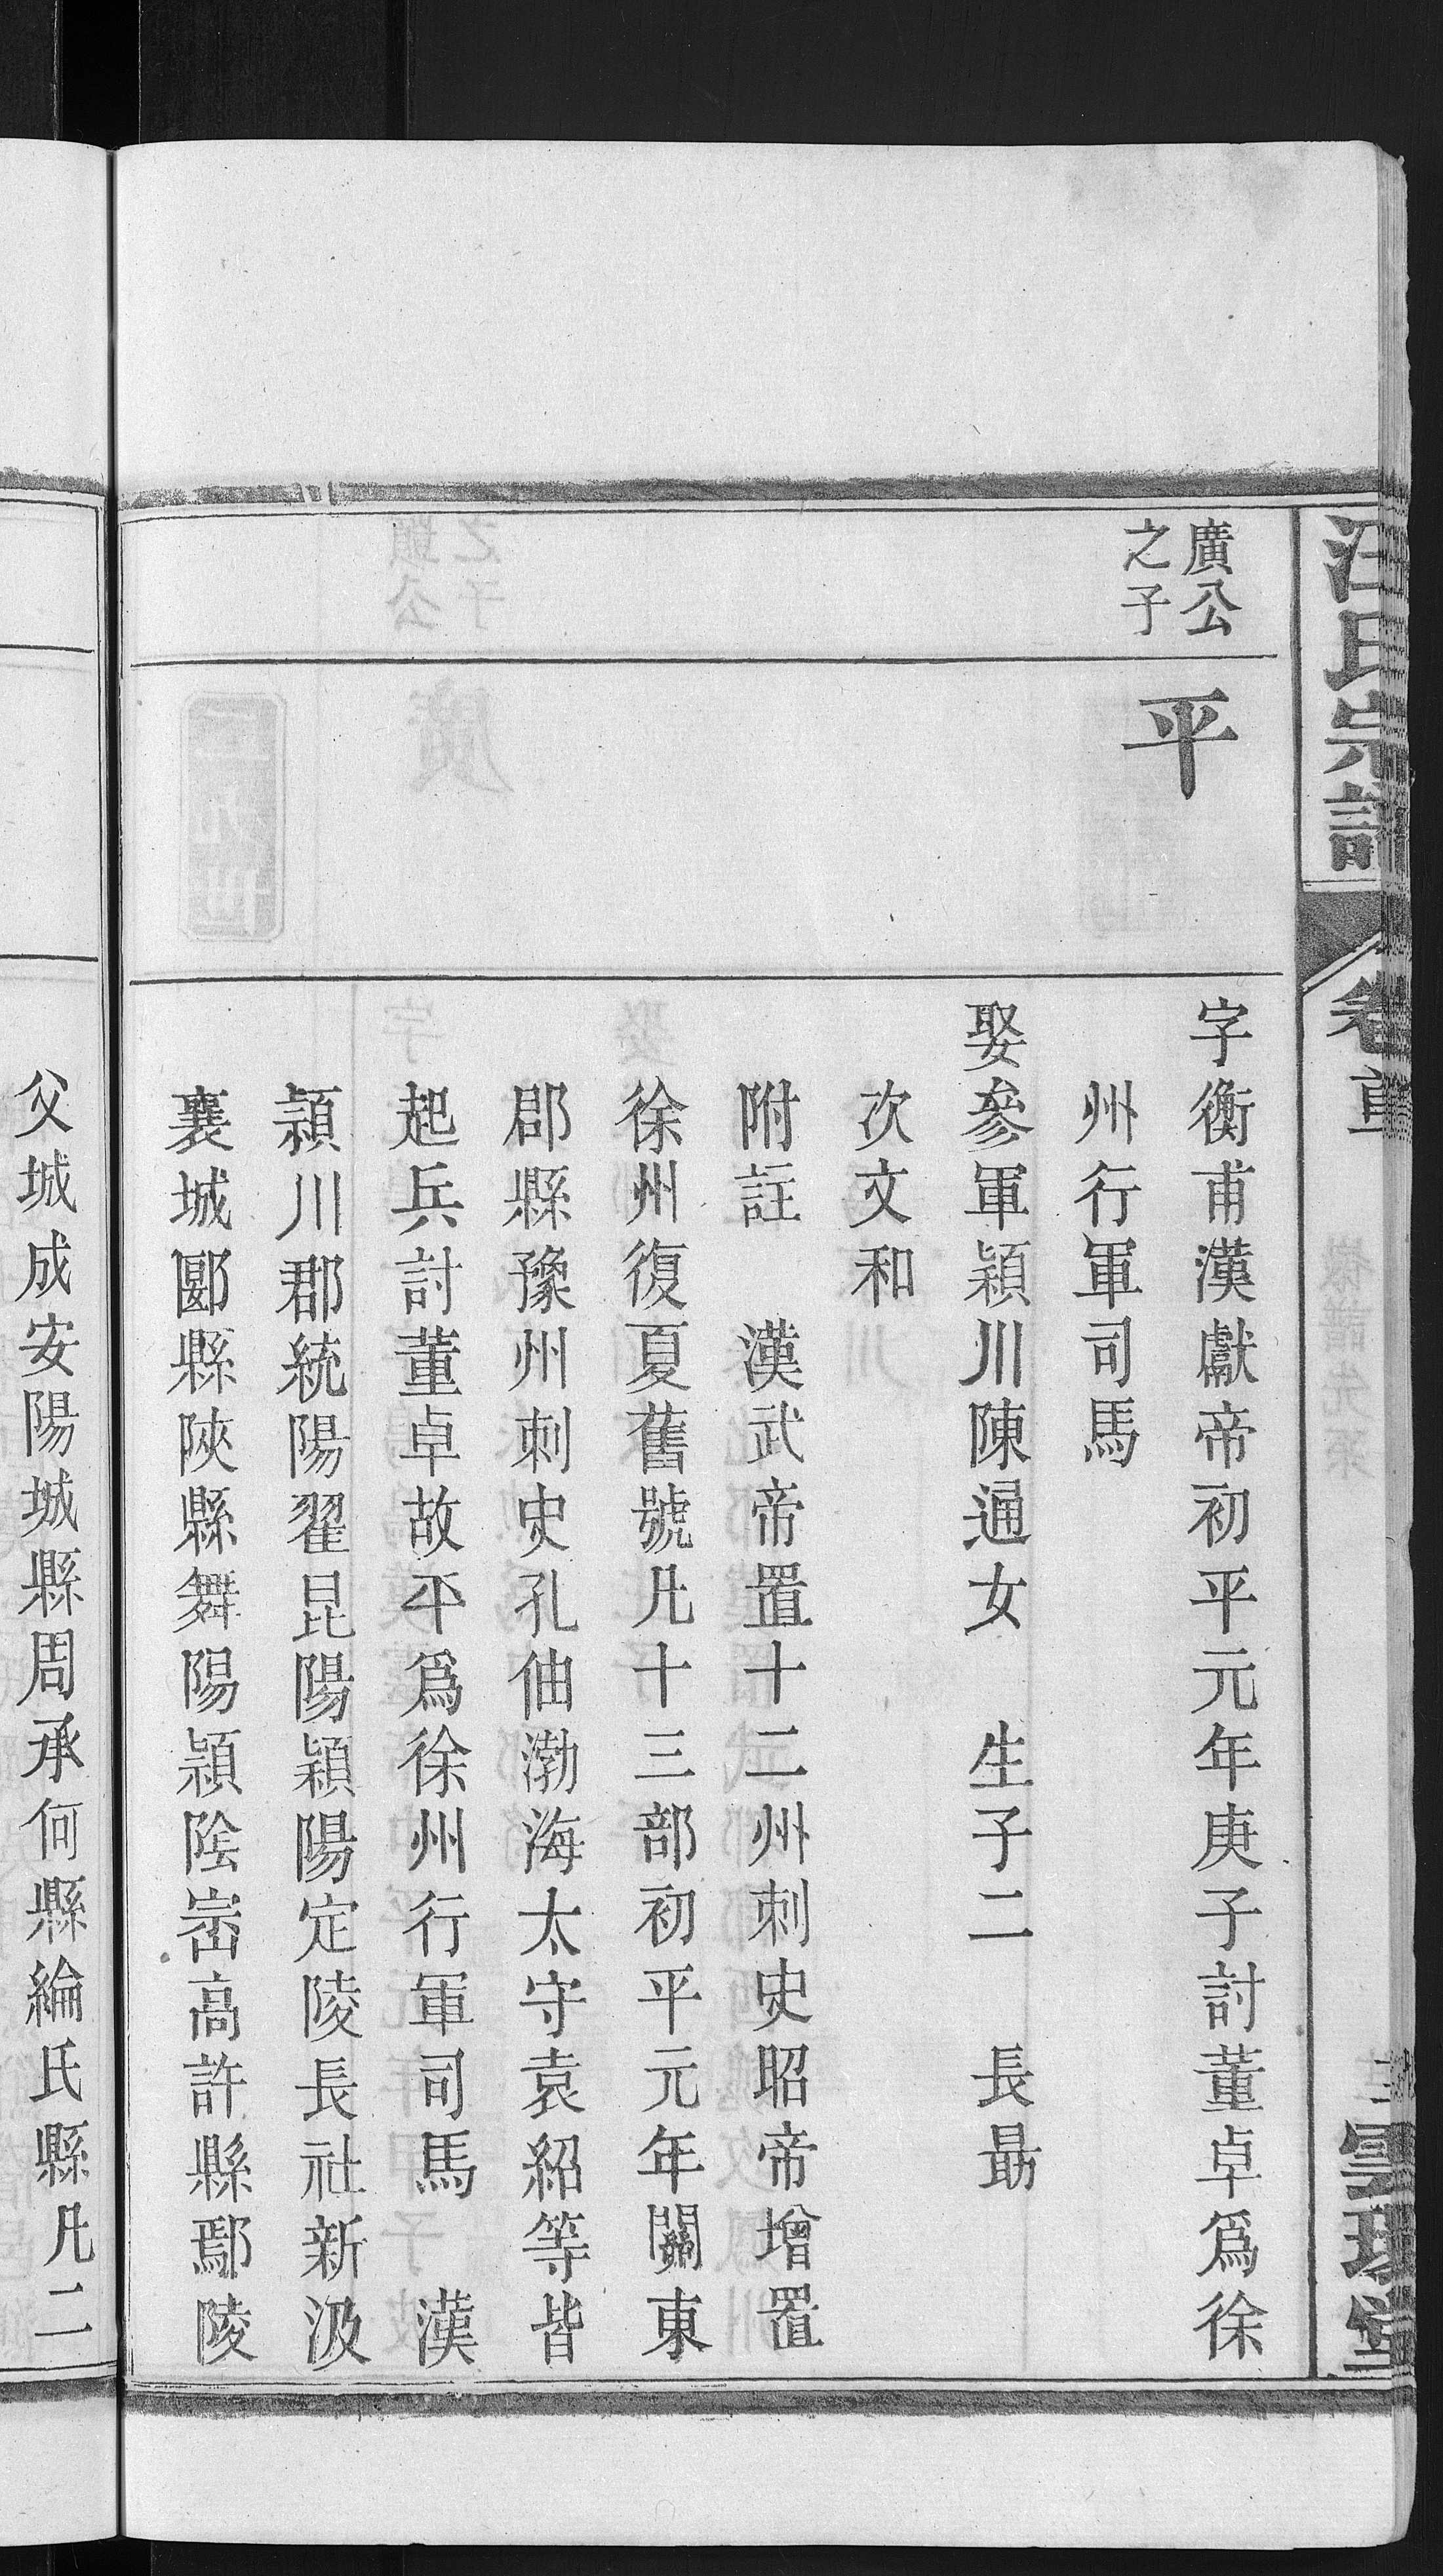 汪氏宗譜
卷首
雲環堂
廣公
之子
平
字衡甫漢獻帝初平元年庚子討董卓爲徐
州行軍司馬
娶參軍潁川陳通女　生子二　長勗
次文和
附註　漢武帝置十二州刺史昭帝增置
徐州復夏舊號凡十三部初平元年關東
郡縣豫州刺史孔伷渤海太守袁紹等皆
起兵討董卓故平爲徐州行軍司馬　漢
潁川郡統陽翟昆陽潁陽定陵長社新汲
襄城郾縣陜縣舞陽潁陰崈高許縣鄢陵
父城成安陽城縣周承何縣綸氏縣凡二